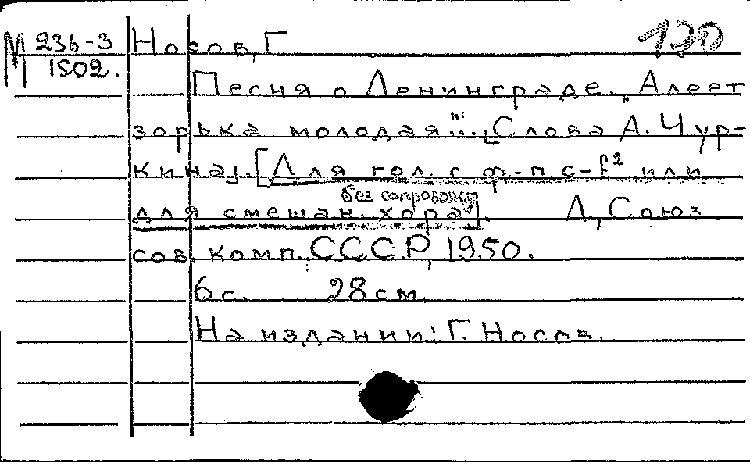 М 236-3 Носов, Г 130
1502.
Песня о Ленинграде. „Алеет
зорька молодая"... [Слова А. Чур-
кина]. [Для гол. с ф-п с-f² или
без сопровожд.
для смешан. хора]. Л, Союз
сов. комп. СССР, 1950.
6 с. 28 см.
На издании: Г. Носов.